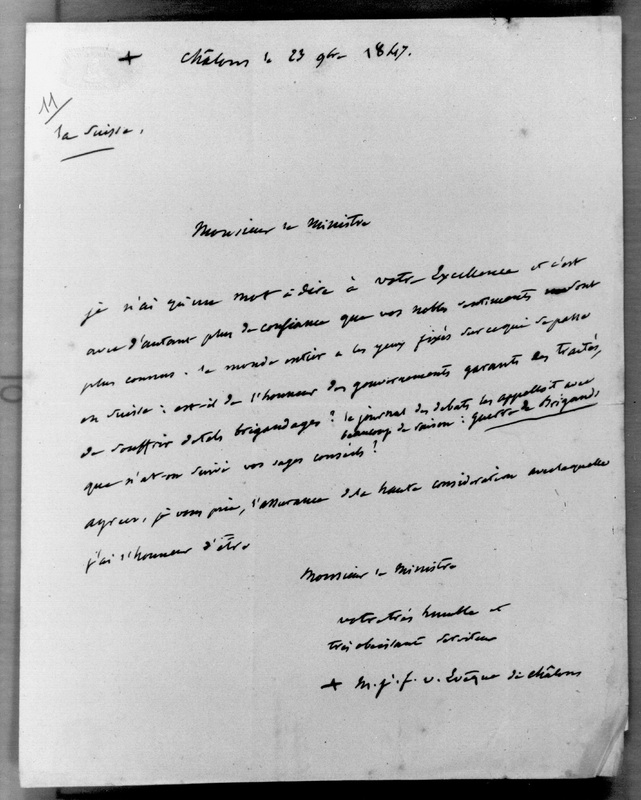 + châlons le 23 9bre 1847.
11
la Suisse.
Monsieur le Ministre
je n'ai qu'un mot à dire à votre Excellence et c'est
avec d'autant plus de confiance que vos nobles sentiments me sont
plus connus. le monde entier a les yeux fixés sur ce qui se passe
en Suisse : est-il de l'honneur des gouvernements garants des traités,
de souffrir de tels brigandages ? le journal des debats les appelloit avec
beaucoup de raison : Guerre de Brigands
que n'at-on suivi vos sages conseils ?
agréez, je vous prie, l'assurance de la haute considération avec laquelle
j'ai l'honneur d'être
Monsieur le Ministre
votre très humble et
très obéissant serviteur
+ m. j. f. v. Evêque de châlons